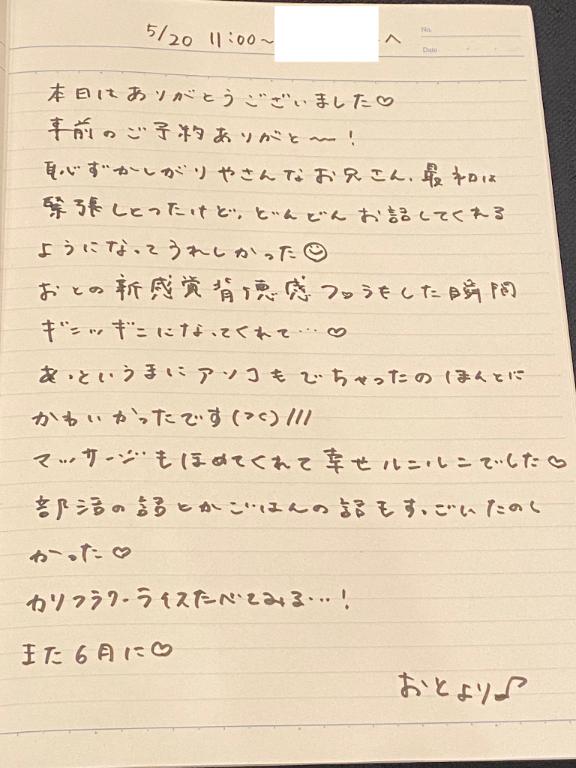 No.
Date
5/20 11:00〜 へ
本日はありがとうございました♡
事前のご予約ありがと〜!
恥ずかしがりやさんなお兄さん、最初は
緊張しとったけど、どんどんお話してくれる
ようになってうれしかった☺
おとの新感覚背徳感フェラをした瞬間
ギンッギンになってくれて…♡
あっというまにアソコもでちゃったのほんとに
かわいかったです(><)///
マッサージもほめてくれて幸せルンルンでした♡
部活の話とかごはんの話もすっごいたのし
かった♡
カリフラワーライスたべてみる…!
また6月に♡
おとより♪